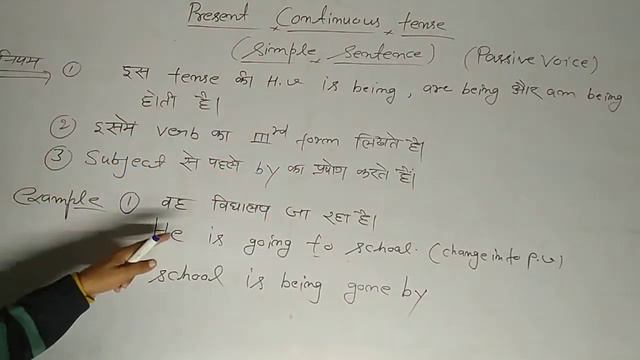 Present Continuous tense
(Simple Sentence) (Passive Voice)
नियम ① इस tense की H.v is being, are being और am being
होती है।
② इसमे verb का IIIrd form लिखते है।
③ Subject से पहले by का प्रयोग करते हैं।
Example ① वह विद्यालय जा रहा है।
He is going to school. (change into p.v)
school is being gone by